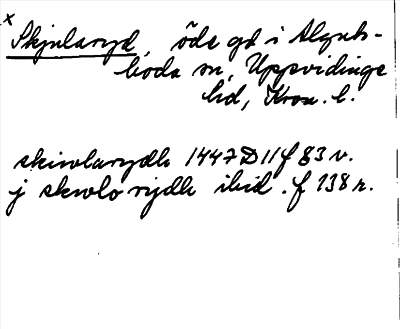 x
Skjularyd, öde gd i Älghults-
boda sn, Uppvidinge
hd, Kron. l.
skiwlarydh 1447 D 11 f 83 v.
j skwlo rydh ibid. f 138 r.